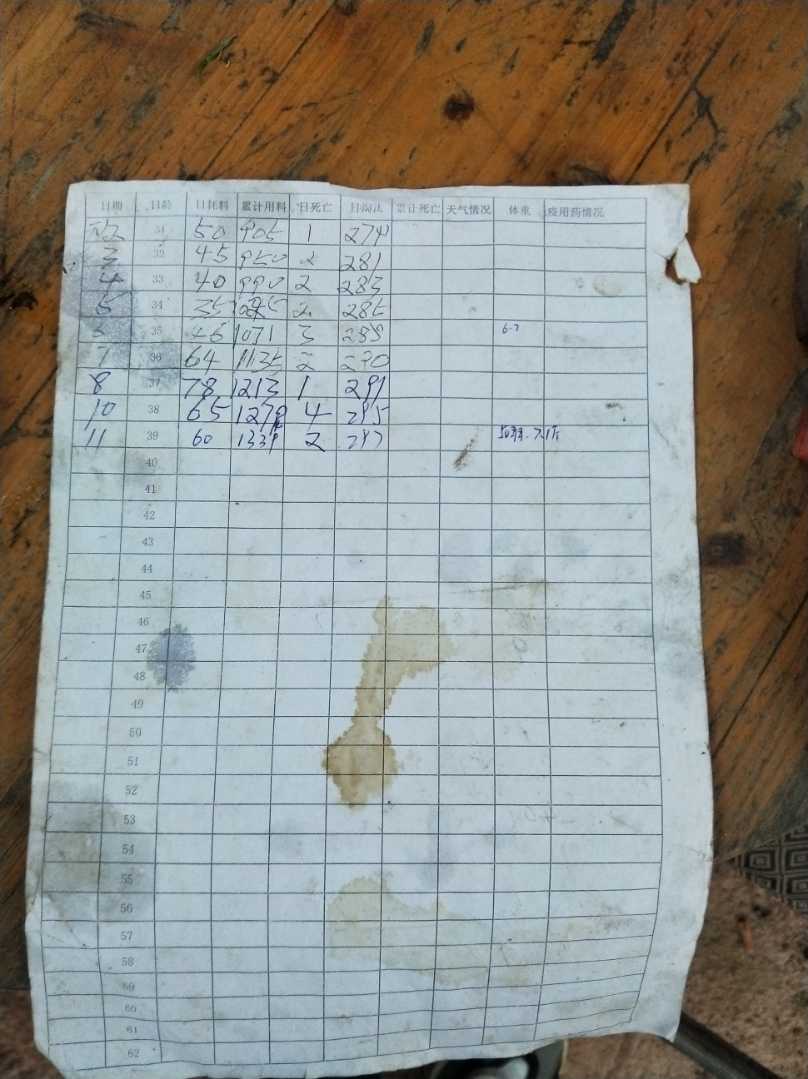 日期 日龄 日耗料 累计用料 日死亡 日淘汰 累计死亡 天气情况 体重 疫用药情况
31 50 905 1 274
3 32 45 950 2 281
4 33 40 990 2 283
5 34 35 2 285
35 46 1071 3 288 6.7
7 36 64 1135 2 290
8 37 78 1213 1 291
10 38 65 1278 4 295
11 39 60 1338 2 297
40
41
42
43
44
45
46
47
48
49
50
51
52
53
54
55
56
57
58
59
60
61
62